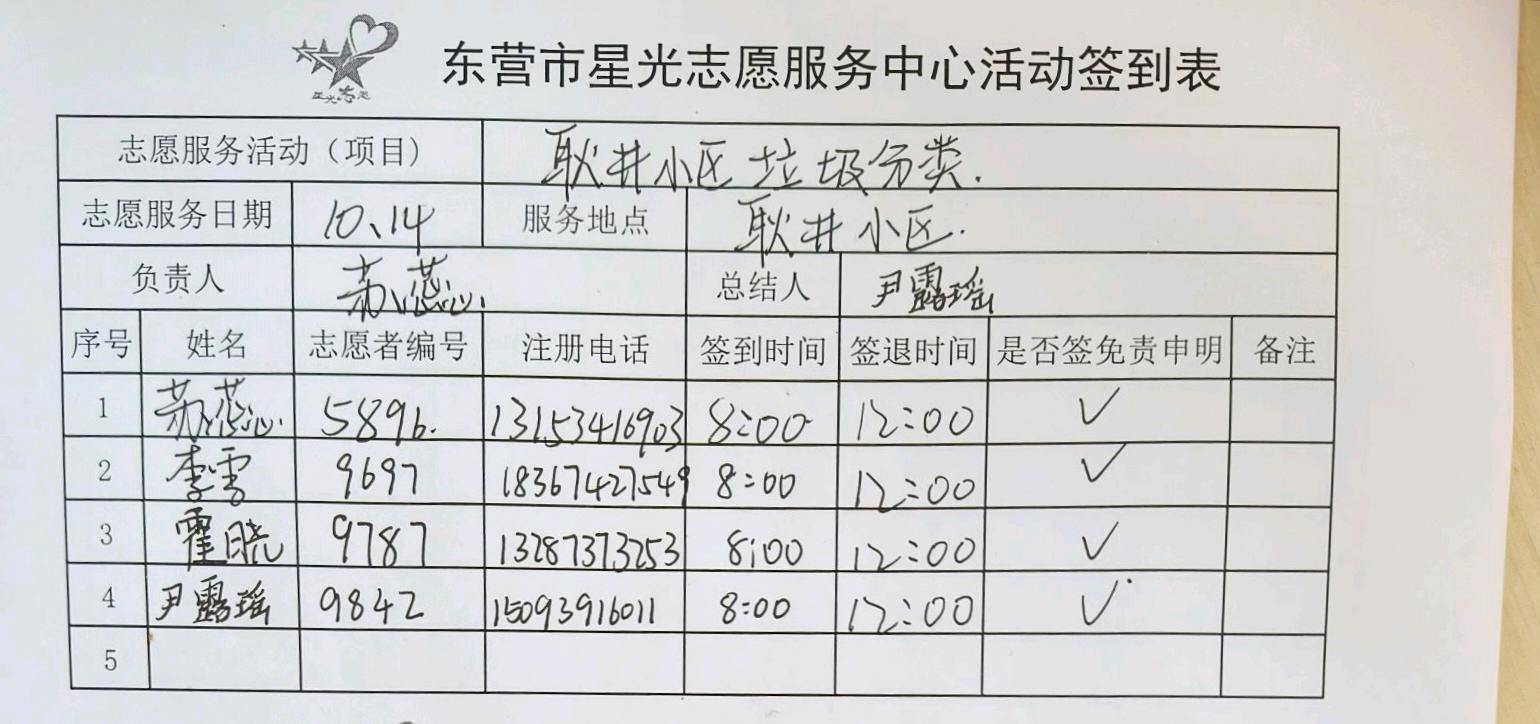 星光志愿
东营市星光志愿服务中心活动签到表
志愿服务活动（项目） 耿井小区垃圾分类.
志愿服务日期 10、14 服务地点 耿井小区.
负责人 苏蕊沁. 总结人 尹露瑶
序号 姓名 志愿者编号 注册电话 签到时间 签退时间 是否签免责申明 备注
1 苏蕊沁. 5896. 13153416903 8:00 12:00 ✓
2 李雪 9697 18367427549 8:00 12:00 ✓
3 霍晓 9787 13287373253 8:00 12:00 ✓
4 尹露瑶 9842 15093916011 8:00 12:00 ✓
5